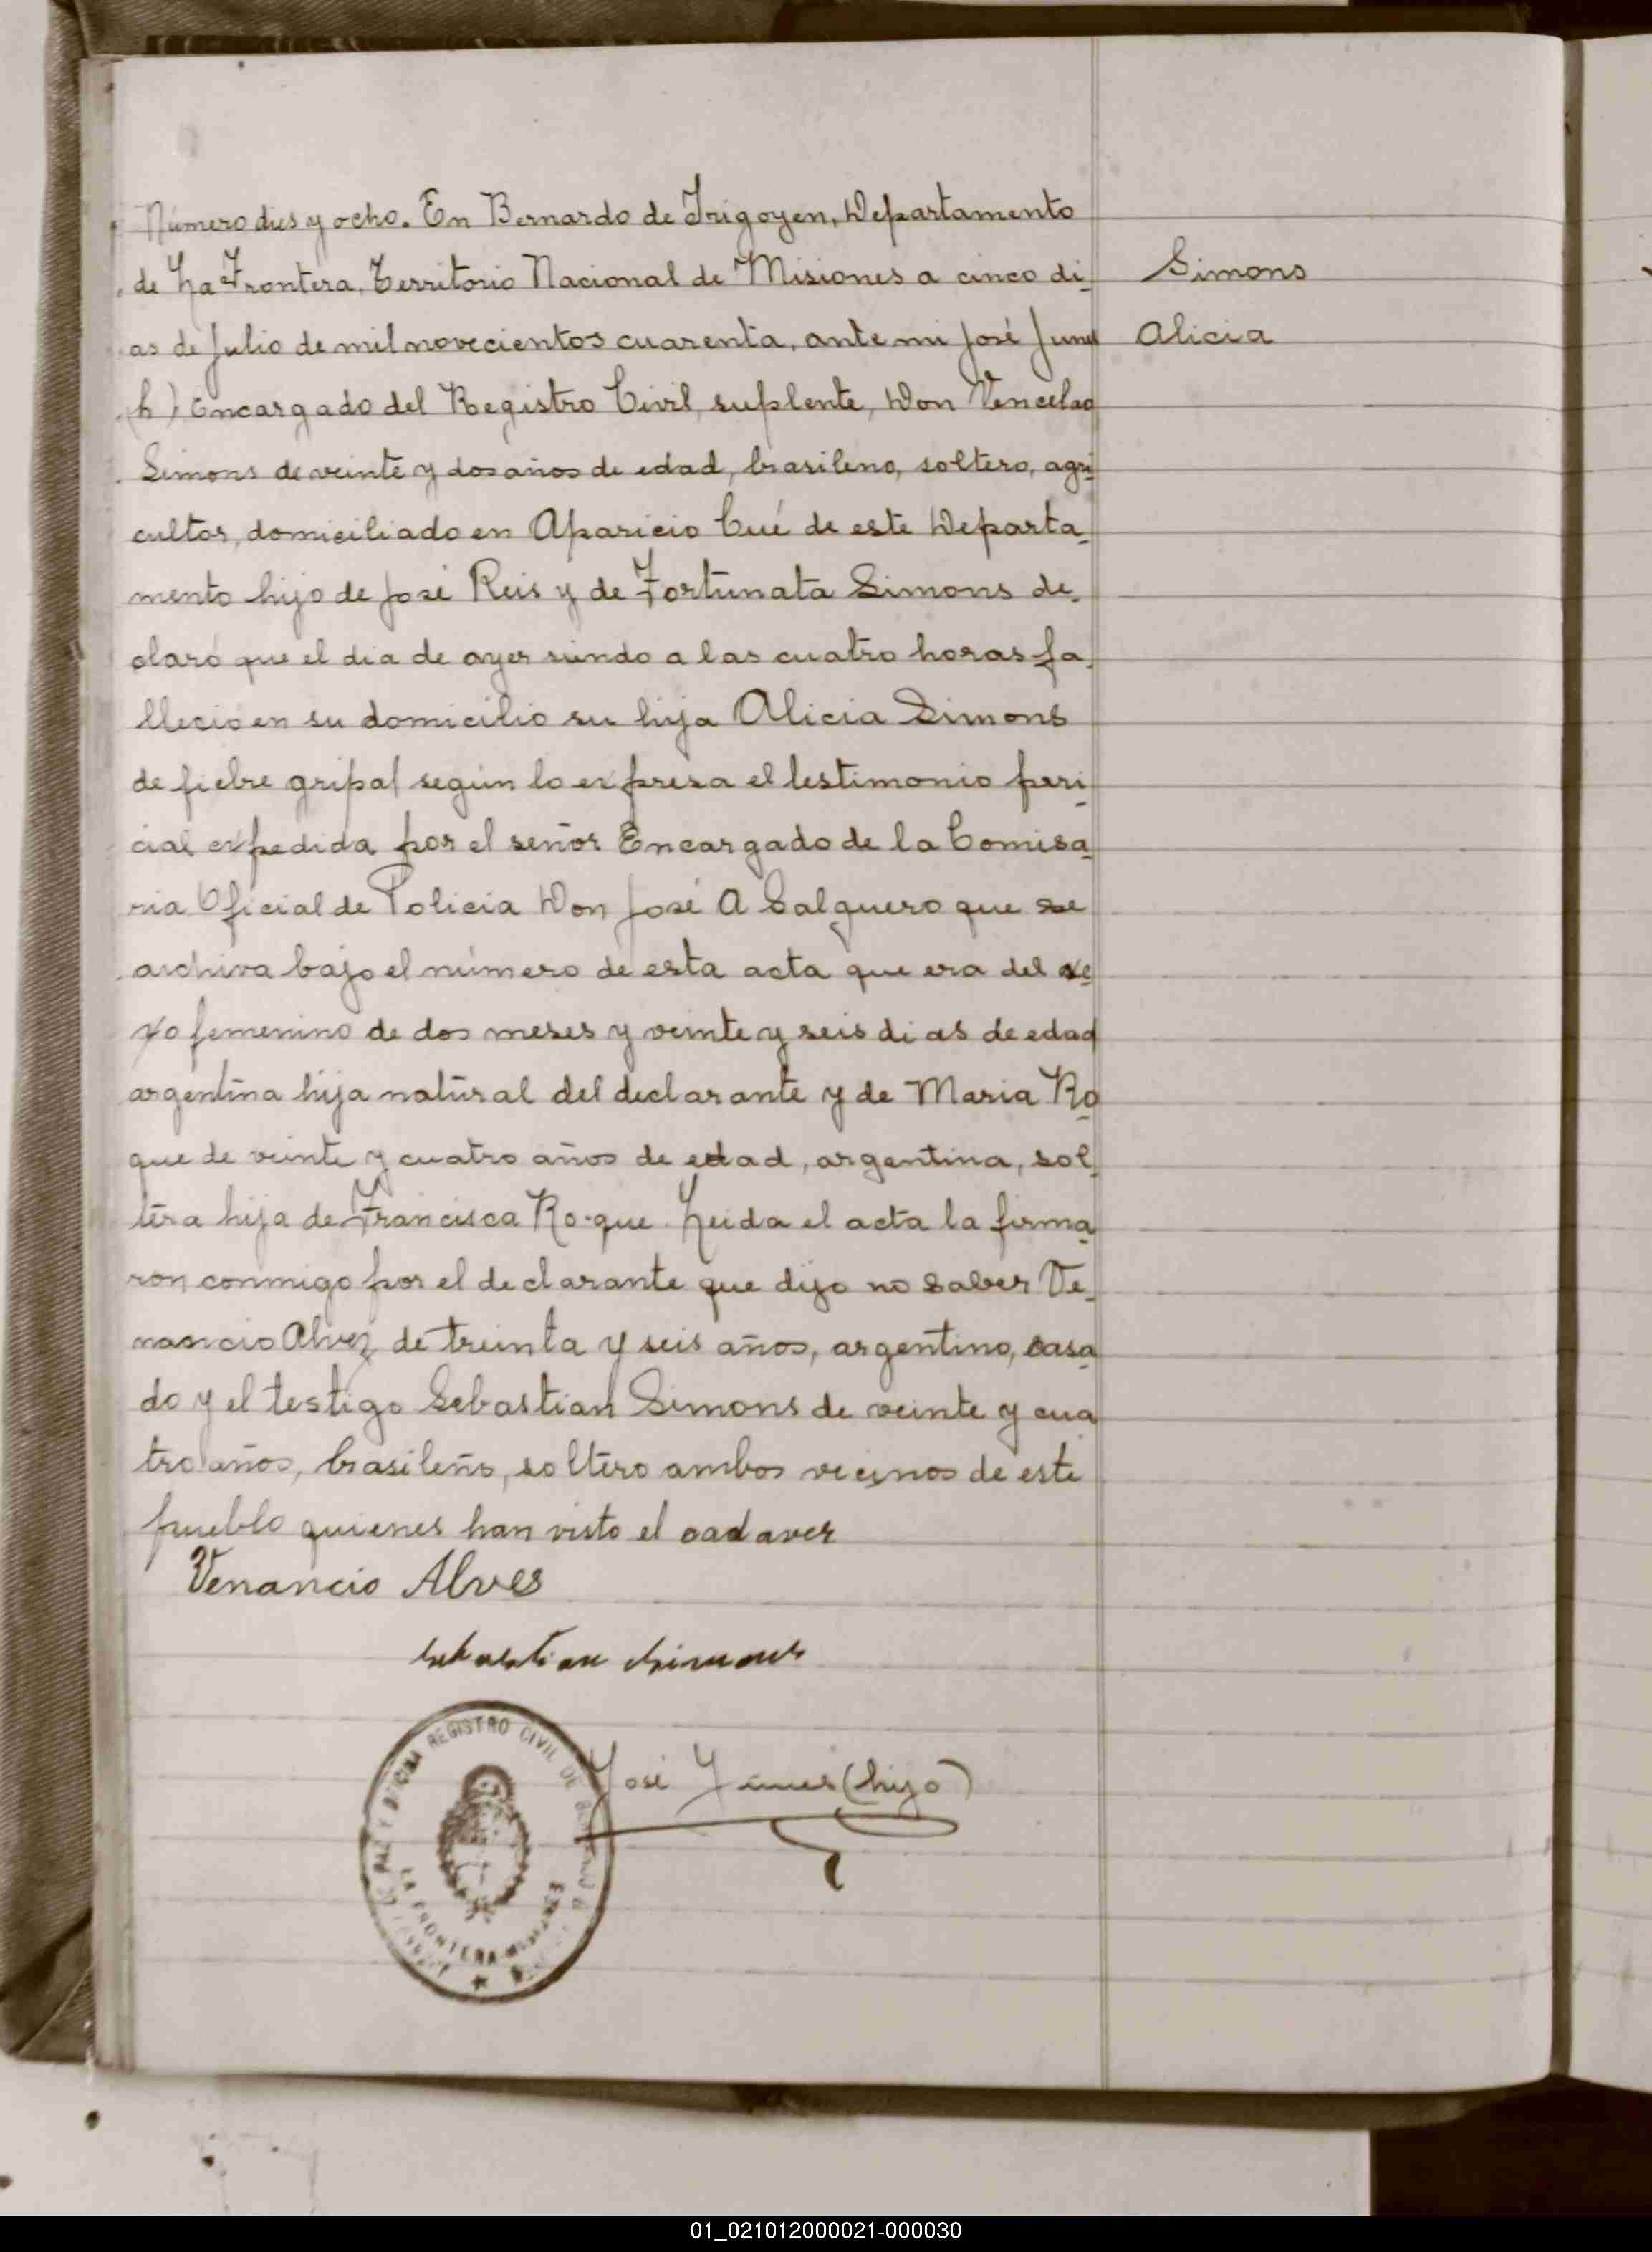 Número dies y ocho. En Bernardo de Irigoyen, Departamento
de La Frontera, Territorio Nacional de Misiones a cinco di-
as de Julio de mil novecientos cuarenta, ante mi José
(h) Encargado del Registro Civil, suplente, Don Vencelao
Simons de veinte y dos años de edad, brasileno, soltero, agri-
cultor, domiciliado en Aparicio Cué de este Departa-
mento hijo de José Reis y de Fortunata Simons de-
claró que el dia de ayer siendo a las cuatro horas fa-
llecio en su domicilio su hija Alicia Simons
de fiebre gripal según lo expresa el testimonio peri-
cial expedida por el señor Encargado de la Comisa-
ria Oficial de Policia Don José A Salguero que se
archiva bajo el número de esta acta que era del se-
xo femenino de dos meses y veinte y seis dias de edad
argentina hija natural del declarante y de Maria Ro-
que de veinte y cuatro años de edad, argentina, sol-
tera hija de Francisca Roque. Leida el acta la firma-
ron conmigo por el declarante que dijo no saber Ve-
nancio Alvez de treinta y seis años, argentino, casa-
do y el testigo Sebastian Simons de veinte y cua
tro años, brasileño, soltero ambos vecinos de este
pueblo quienes han visto el cadaver
Simons
Alicia
Venancio Alves
Sebastian Simons
José (hijo)
DE PAZ Y OFICINA REGISTRO CIVIL DE
LA FRONTERA
01_021012000021-000030